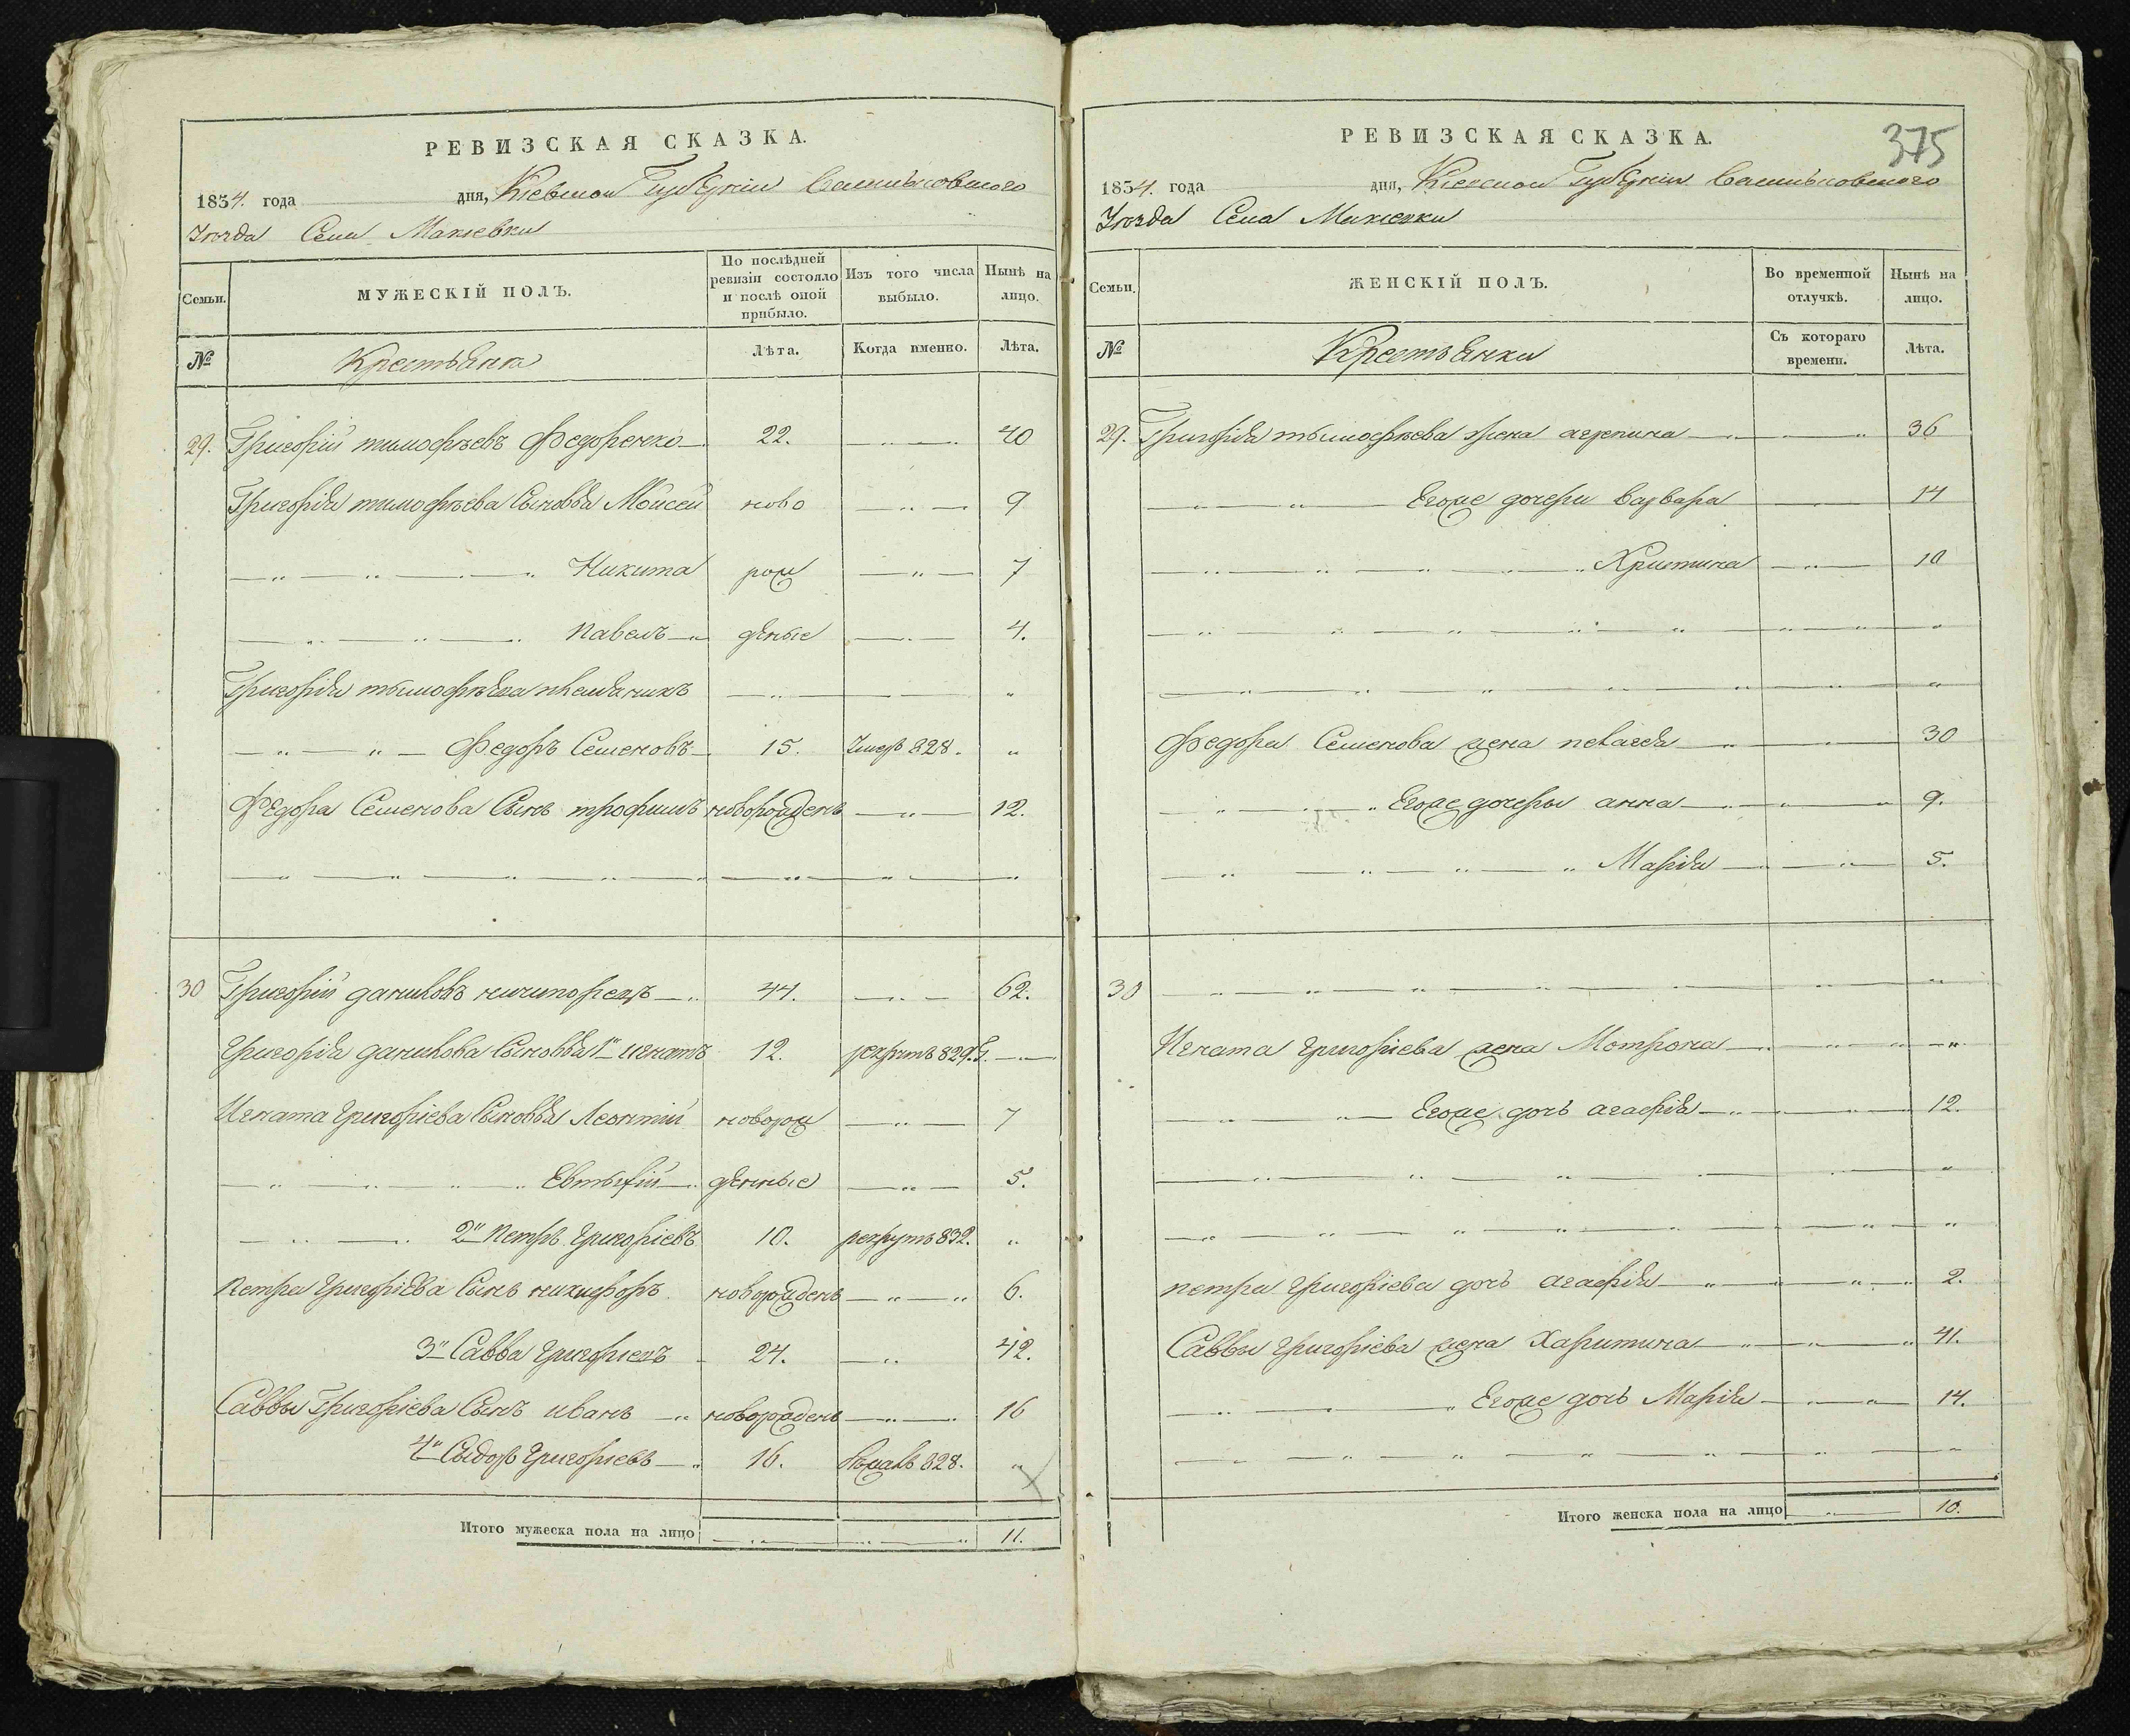 РЕВИЗСКАЯ СКАЗКА.
1834. года дня, Кіевской Губерніи Васильковского
Уѣзда Села Макѣевки
Семьи.
МУЖЕСКІЙ ПОЛЪ.
По послѣдней ревизіи состояло и послѣ оной прибыло.
Изъ того числа выбыло.
Нынѣ на лицо.
№ Крестьяна Лѣта. Когда именно. Лѣта.
29. Григорій тимофѣевъ Федоренко 22. 40
Григорія тимофѣева Сыновья Мойсей ново 9
Никита рож 7
павелъ дѣные 4.
Григорія тимофѣева племѣникъ
Федоръ Семеновъ 15. Умеръ 828.
Федора Семенова Сынъ трофимъ новорожденъ 12.
30 Григорій даниловъ 44. 62.
Григорія данилова Сыновья 1й игнатъ 12. рекрутъ 829. Г.
Игната григоріева Сыновья Леонтій новорож 7
Евтыхій дѣнные 5.
2й петръ григоріевъ 10. рекрутъ 832.
петра григоріева Сынъ никифоръ новорожденъ 6.
3й Савва григоріевъ 24. 42.
Саввы Григоріева Сынъ иванъ новорожденъ 16
4й Сыдоръ григоріевъ 16. бѣжалъ 828.
Итого мужеска пола на лицо 11.
375
РЕВИЗСКАЯ СКАЗКА.
1834. года дня, Кіевской Губерніи Васильковского
Уѣзда Села Макѣевки
Семьи.
ЖЕНСКІЙ ПОЛЪ.
Во временной отлучкѣ.
Нынѣ на лицо.
№ Крестьянки Съ котораго времени. Лѣта.
29. Григорія тымофѣева жена агрепина 36
Егоже дочери варвара 14
Христина 10
Федора Семенова жена пелагея 30
Егоже дочеры анна 9.
Марія 5.
30
Игната григоріева жена Мотрона
Егоже дочь агафія 12.
петра григоріева дочь агафія 2.
Саввы григоріева жена Харитина 41.
Егоже дочь Марія 14.
Итого женска пола на лицо 10.